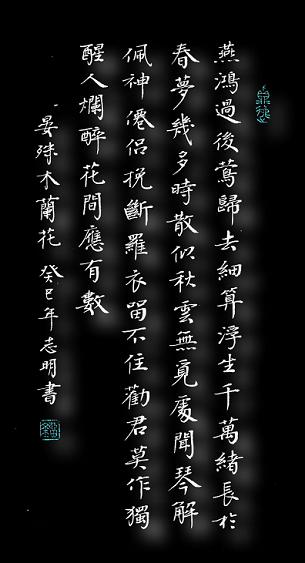 燕鴻過後鶯歸去細算浮生千萬緒長於
春夢幾多時散似秋雲無覓處聞琴解
佩神僊侶挽斷羅衣留不住勸君莫作獨
醒人爛醉花間應有數
晏殊木蘭花 癸巳年志明書